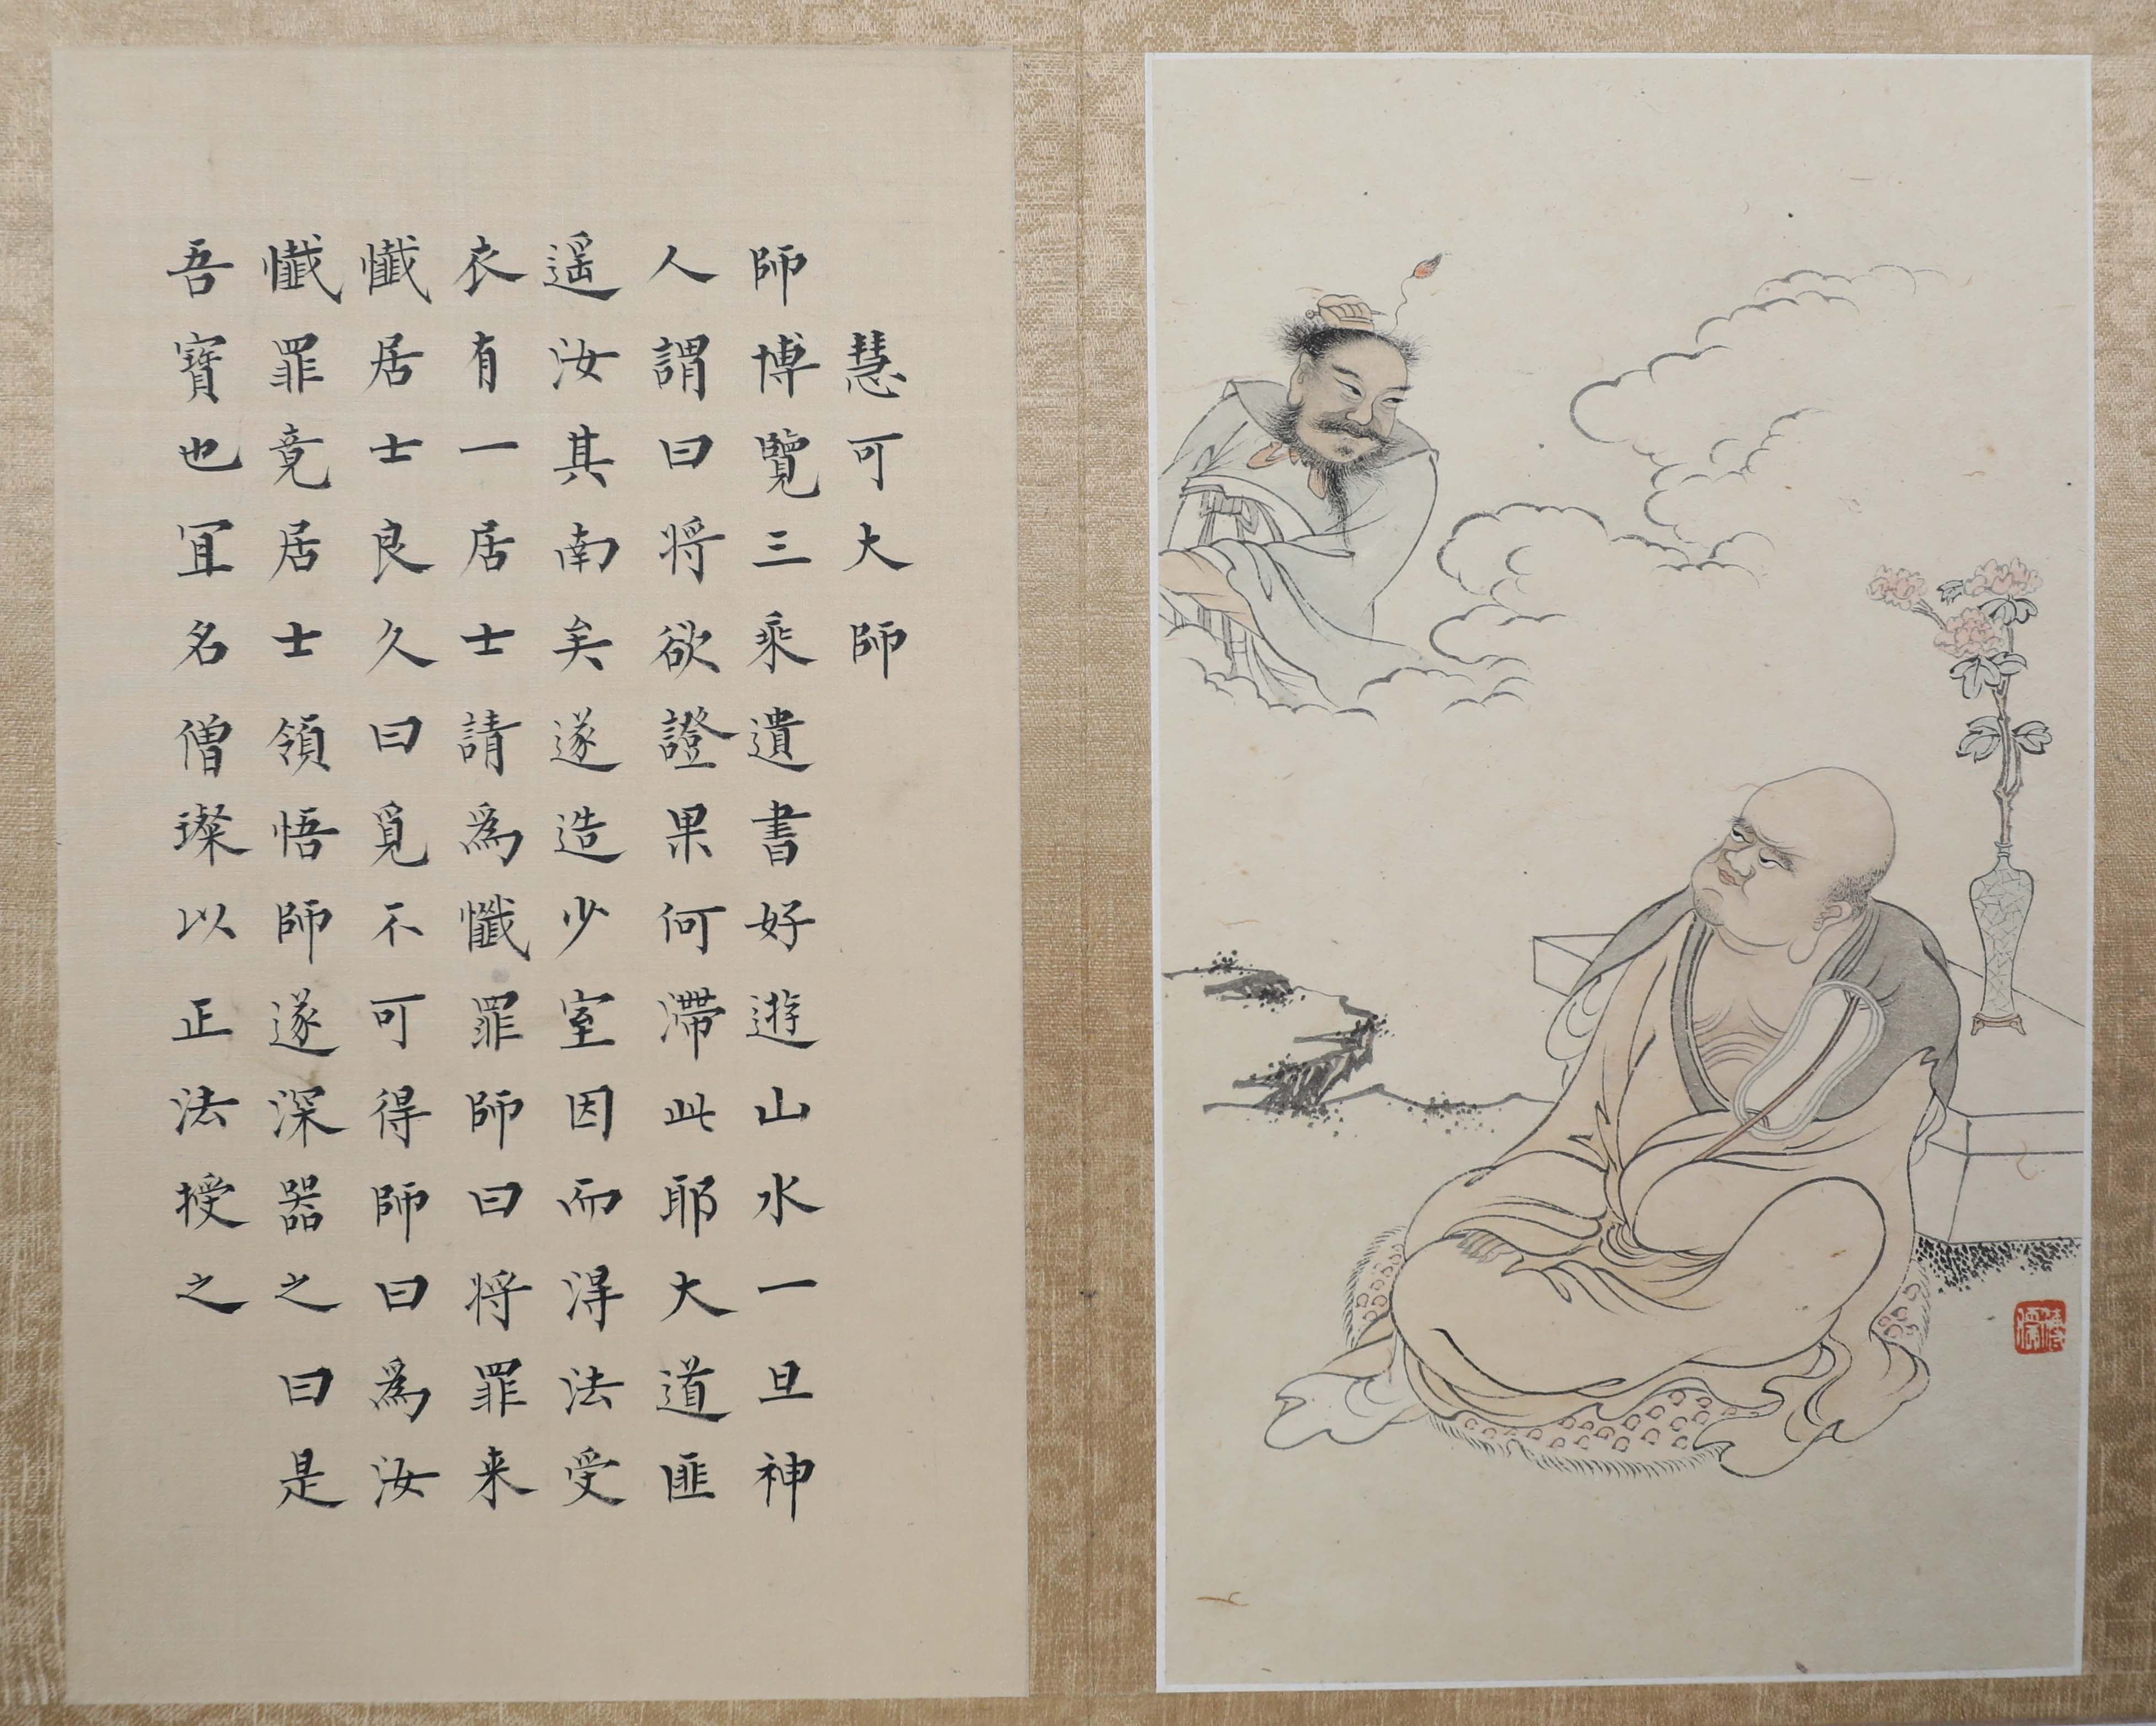 慧可大師
師博覽三乘遺書好遊山水一旦神
人謂曰將欲證果何滯此耶大道匪
遥汝其南矣遂造少室因而得法受
衣有一居士請為懺罪師曰將罪来
懺居士良久曰覓不可得師曰為汝
懺罪竟居士領悟師遂深器之曰是
吾寶也宜名僧璨以正法授之